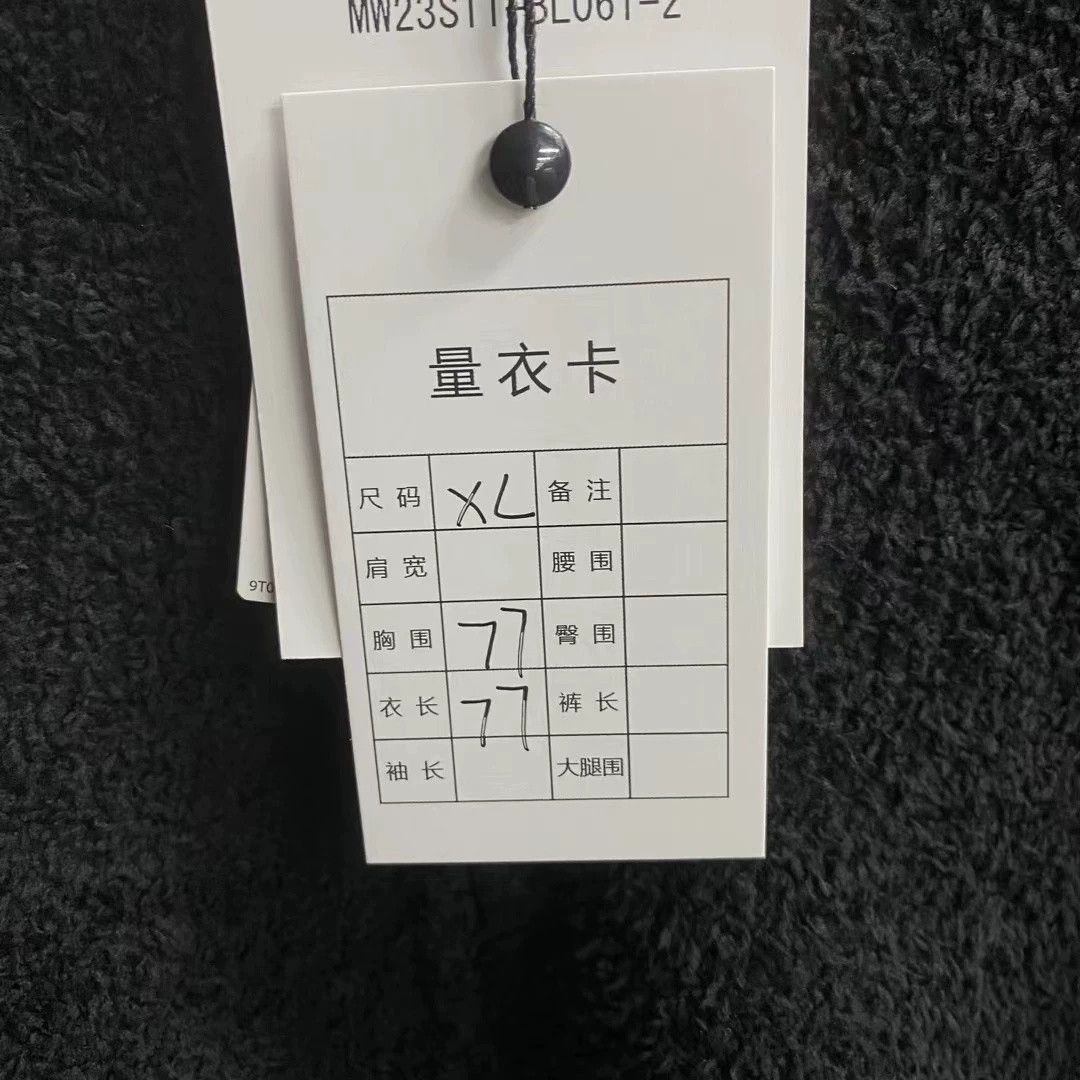 量衣卡
尺码 XL 备注
肩宽 腰围
胸围 77 臀围
衣长 77 裤长
袖长 大腿围
9T0